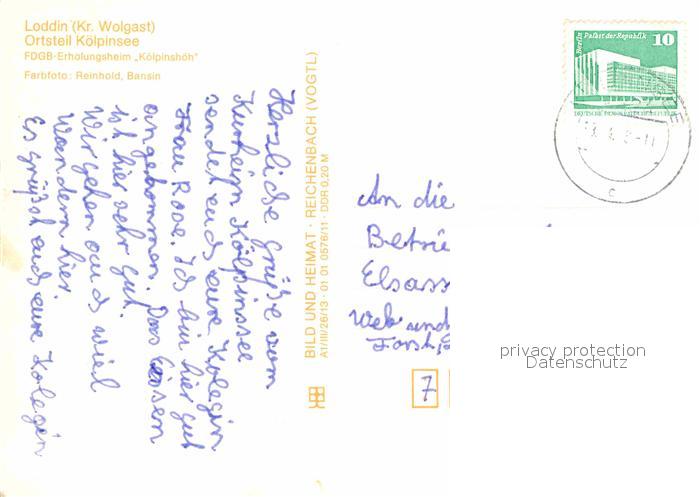 Loddin (Kr. Wolgast)
Ortsteil Kölpinsee
FDGB-Erholungsheim „Kölpinshöh"
Farbfoto: Reinhold, Bansin
Herzliche Grüße vom
Kurheim Kölpinssee
sendet euch eure Kolegin
Frau Rose. Ich bin hier gut
angekommen. Das Essen
ist hier sehr gut.
Wir gehen auch viel
Wandern hier.
Es grüßt euch eure Kolegin
BILD UND HEIMAT · REICHENBACH (VOGTL)
A1/III/26/13 · 01 01 0576/11 · DDR 0,20 M
Berlin Palast der Republik
10
DEUTSCHE DEMOKRATISCHE REPUBLIK
c
An die
Betrie
Elsass
Web und
Forst,
7
privacy protection
Datenschutz